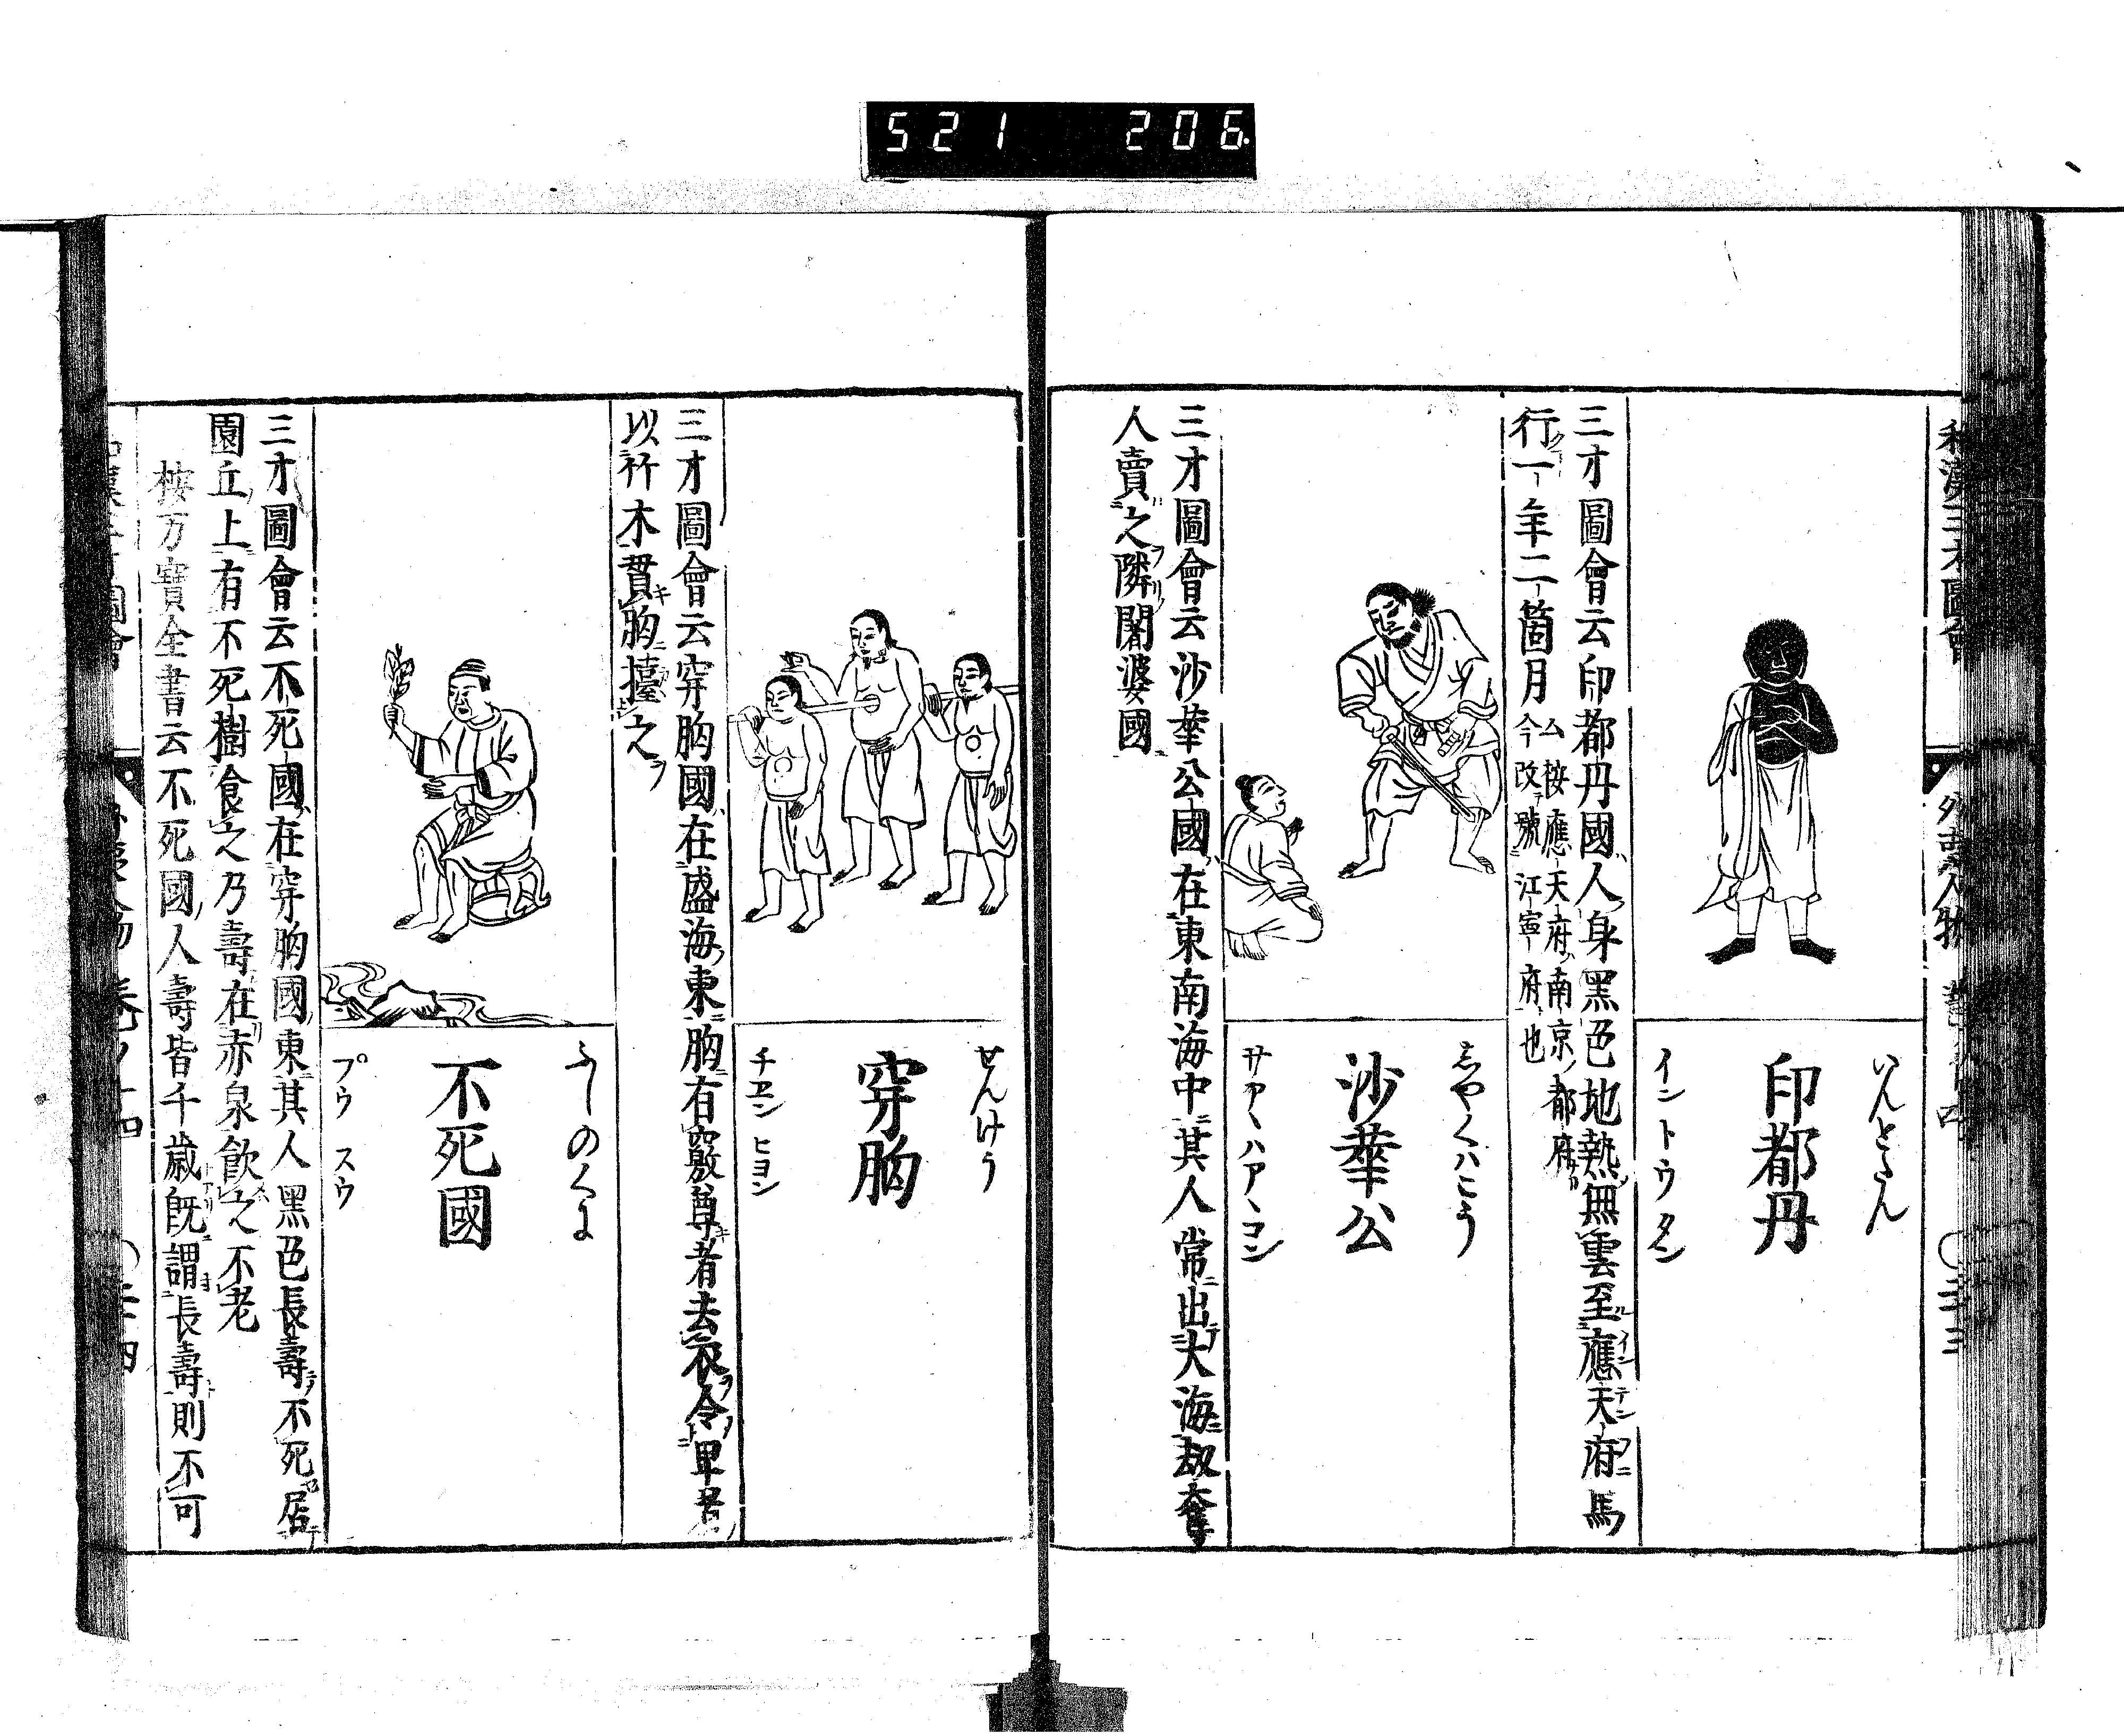 521 206
和漢三才圖會 外夷人物
いんとたん
印都丹
イントウタン
三才圖會云印都丹國人身黑色地熱無雲至應天府馬
行一年二箇月
按應天府南京都府
今改號江寧府也
志やくハこう
沙華公
サアヽハアヽコン
三才圖會云沙華公國在東南海中其人常出大海劫奪
人賣之隣闍婆國
せんけう
穿胸
チヱンヒヨン
三才圖會云穿胸國在盛海東胸有竅尊者去衣令卑者
以竹木貫胸擡之
ふしのくに
不死國
プウスウ
三才圖會云不死國在穿胸國東其人黑色長壽不死居
園丘上有不死樹食之乃壽在赤泉飲之不老
按万寶全書云不死國人壽皆千歳既謂長壽則不可